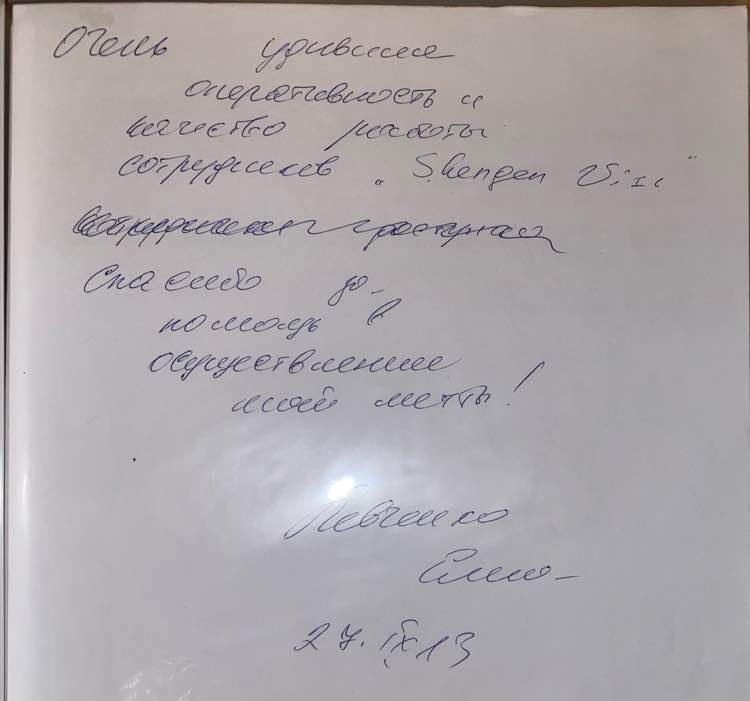 Очень удивила
оперативность и
качество работы
сотрудников „Shengen Visa"
Спасибо за
помощь в
осуществлении
моей мечты!
Левченко
27. IX 13